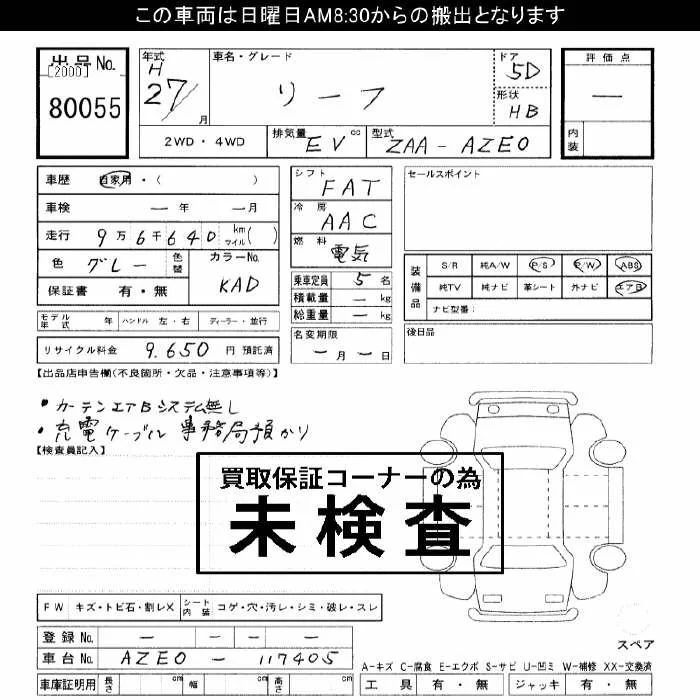 この車両は日曜日AM8:30からの搬出となります
出品No.
[2000]
80055
年式
H
27/
月
車名・グレード
リーフ
ドア
5D
形状
HB
評価点
—
内装
2WD・4WD
排気量
EV cc
型式
ZAA - AZE0
車歴 自家用・( )
車検 — 年 — 月
走行 9万6千640 km マイル( )
色 グレー 色替
カラーNo.
KAD
保証書 有・無
シフト
FAT
冷房
AAC
燃料
電気
乗車定員 5 名
積載量 — kg
総重量 — kg
セールスポイント
装備品
S/R 純A/W P/S P/W ABS
純TV 純ナビ 革シート 外ナビ エアB
ナビ型番:
モデル年式 年 ハンドル 左・右 ディーラー・並行
名変期限
— 月 — 日
後日品
リサイクル料金 9.650 円 預託済
【出品店申告欄(不良箇所・欠品・注意事項等)】
・カーテンエアBシステム無し
・充電ケーブル 事務局預かり
【検査員記入】
買取保証コーナーの為
未検査
FW キズ・トビ石・割レX シート内装 コゲ・穴・汚レ・シミ・破レ・スレ
登録No. — — —
車台No. AZE0 - 117405
車庫証明用 長さ cm 幅 cm 高さ cm
スペア
A-キズ C-腐食 E-エクボ S-サビ U-凹ミ W-補修 XX-交換済
工具 有・無 ジャッキ 有・無